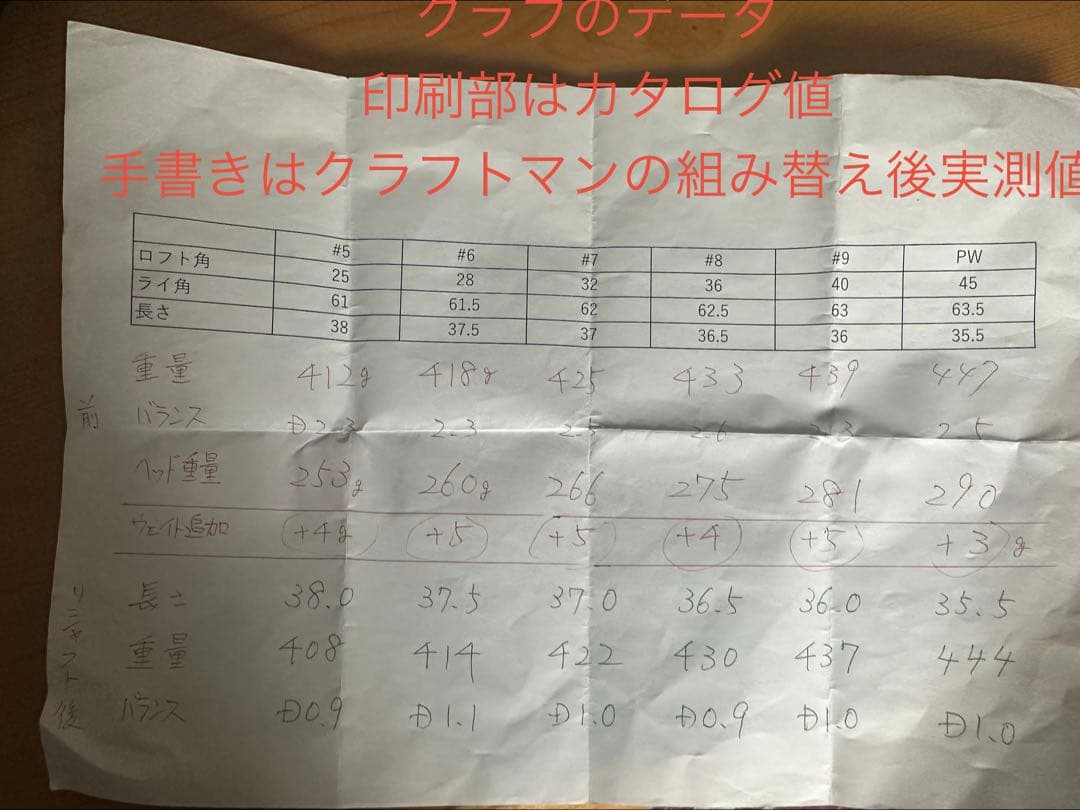 クラブのデータ
印刷部はカタログ値
手書きはクラフトマンの組み替え後実測値
#5 #6 #7 #8 #9 PW
ロフト角 25 28 32 36 40 45
ライ角 61 61.5 62 62.5 63 63.5
長さ 38 37.5 37 36.5 36 35.5
前
重量 412g 418g 425 433 439 447
バランス D2.3 2.3 2.5 2.6 2.3 2.5
ヘッド重量 253g 260g 266 275 281 290
ウェイト追加 +4g +5 +5 +4 +5 +3g
リシャフト後
長さ 38.0 37.5 37.0 36.5 36.0 35.5
重量 408 414 422 430 437 444
バランス D0.9 D1.1 D1.0 D0.9 D1.0 D1.0